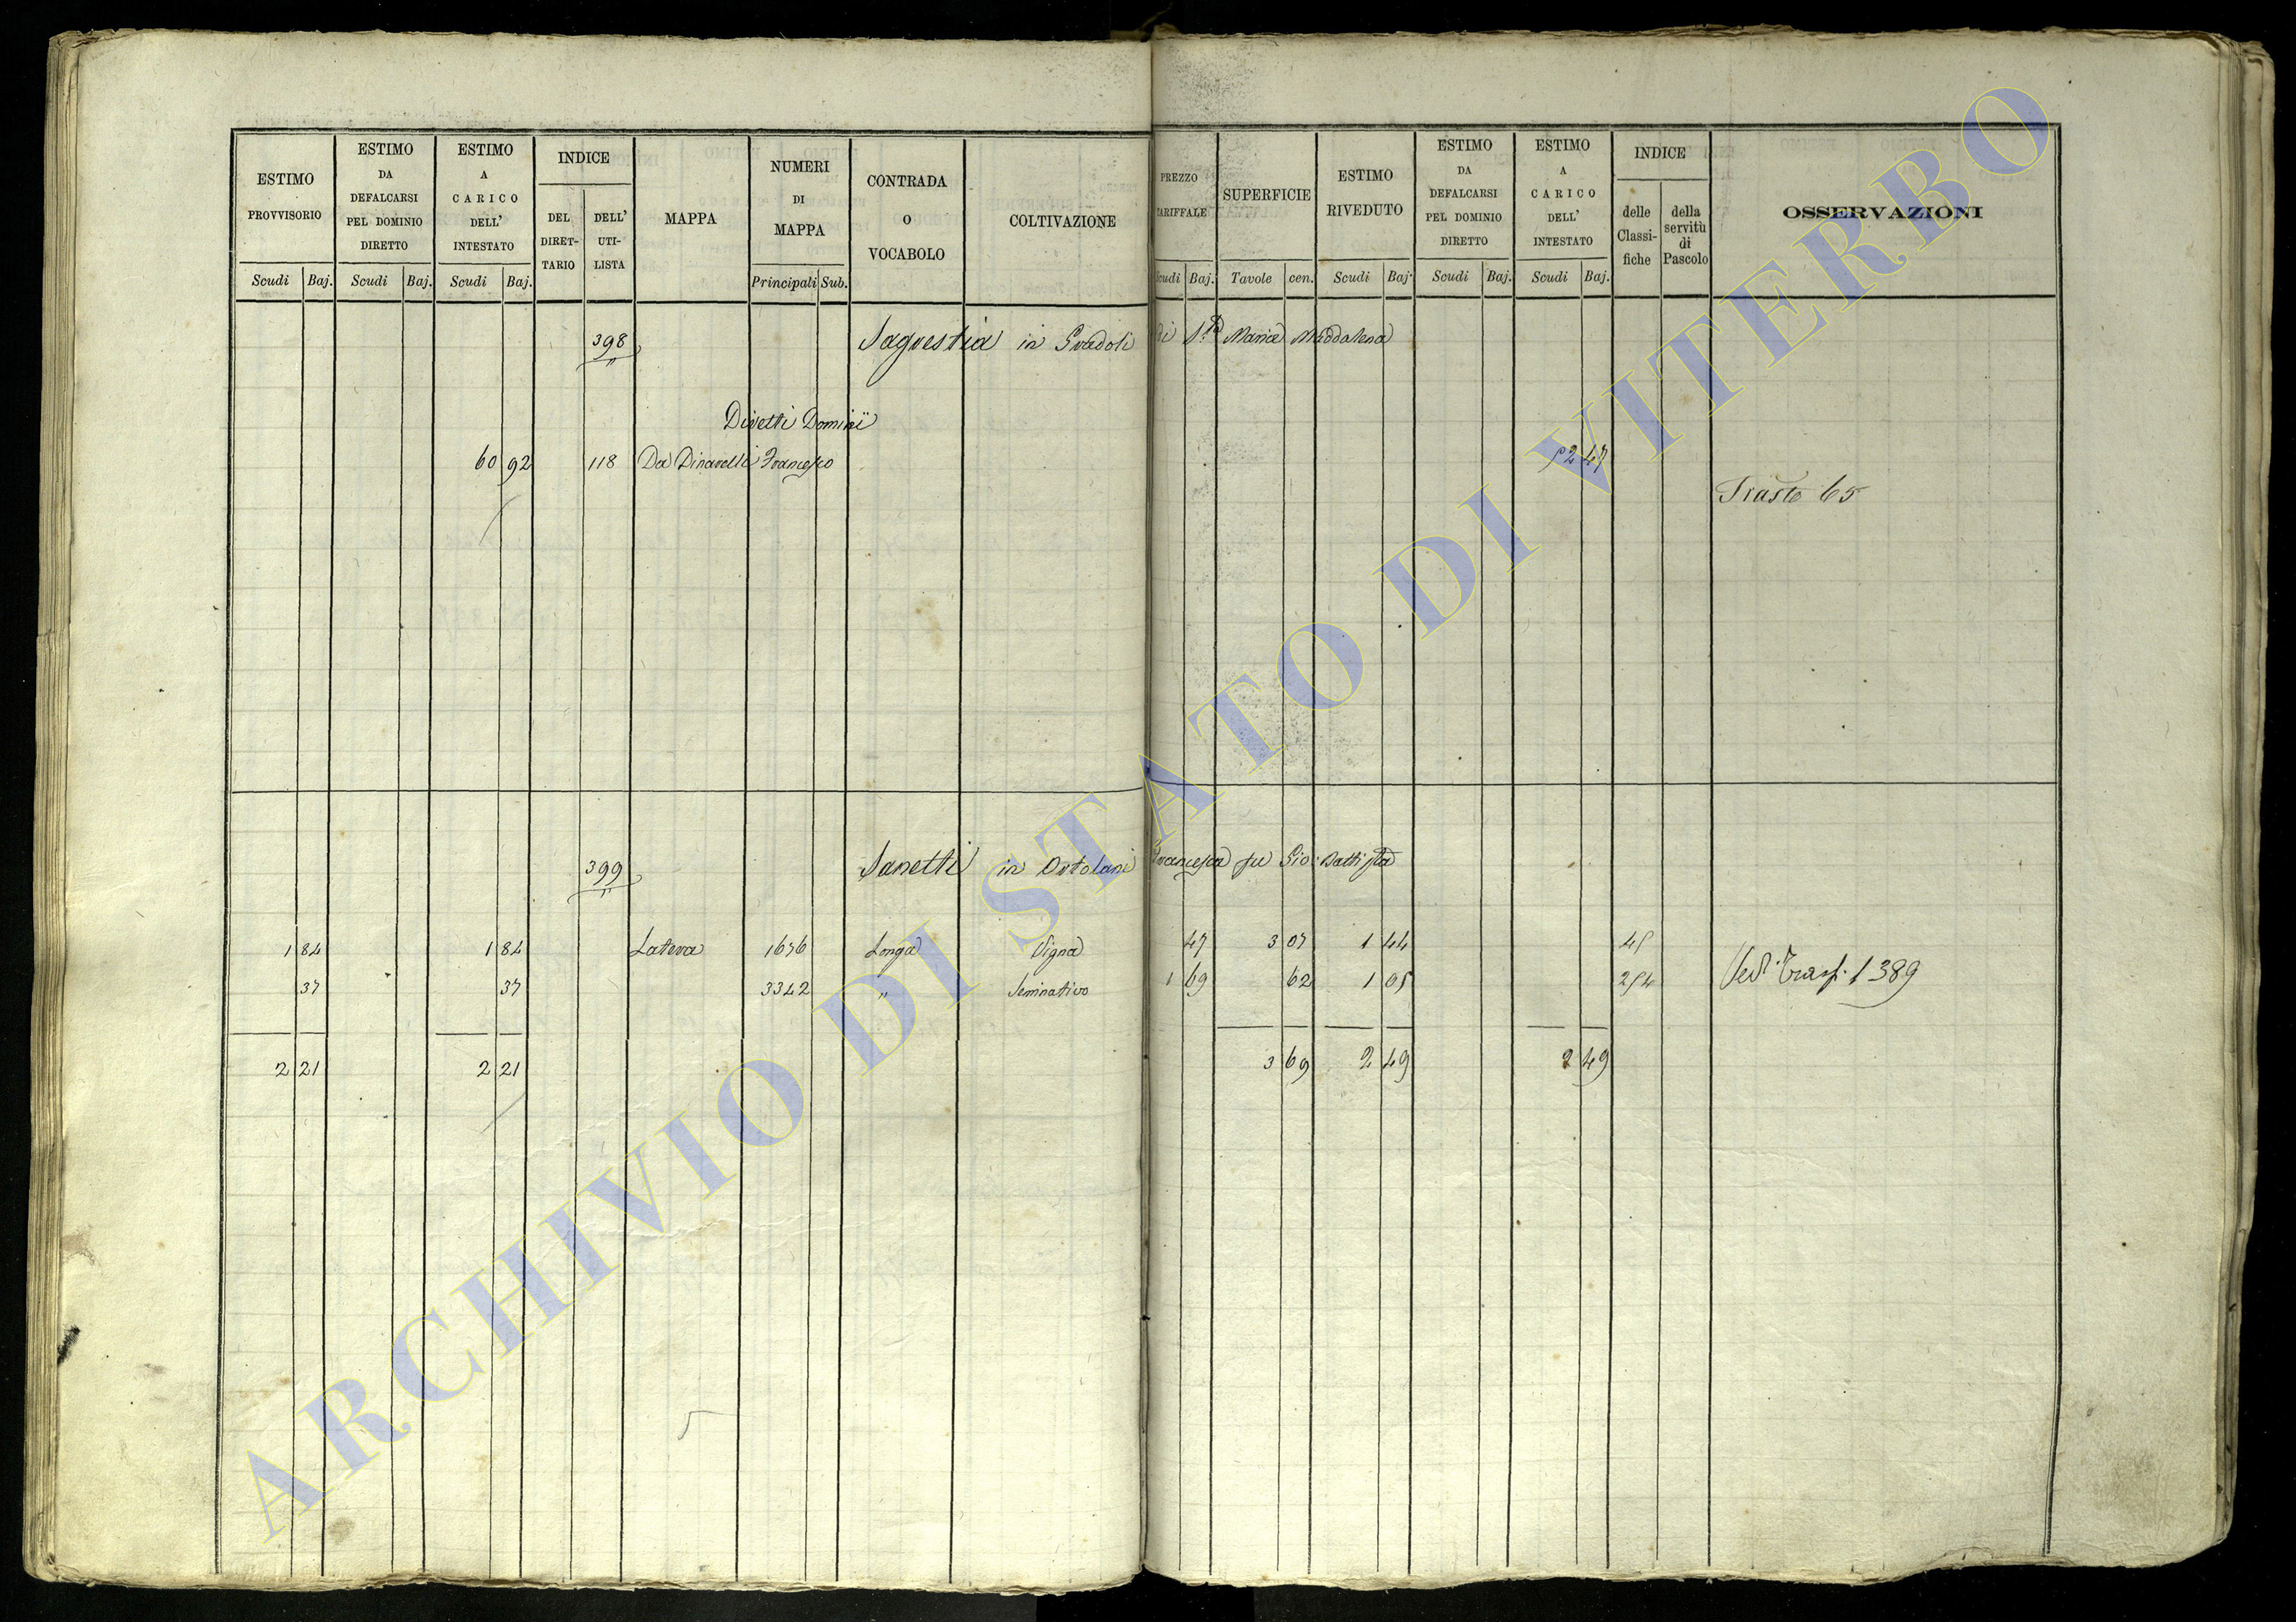 ESTIMO PROVVISORIO Scudi Baj. ESTIMO DA DEFALCARSI PEL DOMINIO DIRETTO Scudi Baj. ESTIMO A CARICO DELL' INTESTATO Scudi Baj. INDICE DEL DIRET-TARIO DELL' UTI-LISTA MAPPA NUMERI DI MAPPA Principali Sub. CONTRADA O VOCABOLO COLTIVAZIONE PREZZO TARIFFALE Scudi Baj. SUPERFICIE Tavole cen. ESTIMO RIVEDUTO Scudi Baj. ESTIMO DA DEFALCARSI PEL DOMINIO DIRETTO Scudi Baj. ESTIMO A CARICO DELL' INTESTATO Scudi Baj. INDICE delle Classi-fiche della servitù di Pascolo OSSERVAZIONI
398 Sagrestia in Gradoli di S.ta Maria Maddalena
Diretti Dominii
60 92 118 Da Francesco 52 47
65
399 Sanetti in Ortolani Francesca fu Gio: Battista
1 84 1 84 Latera 1676 Longa Vigna 47 3 07 1 44 45
37 37 3342 " Seminativo 1 69 62 1 05 254 Ved. Trasp. 1389
2 21 2 21 3 69 2 49 2 49
ARCHIVIO DI STATO DI VITERBO